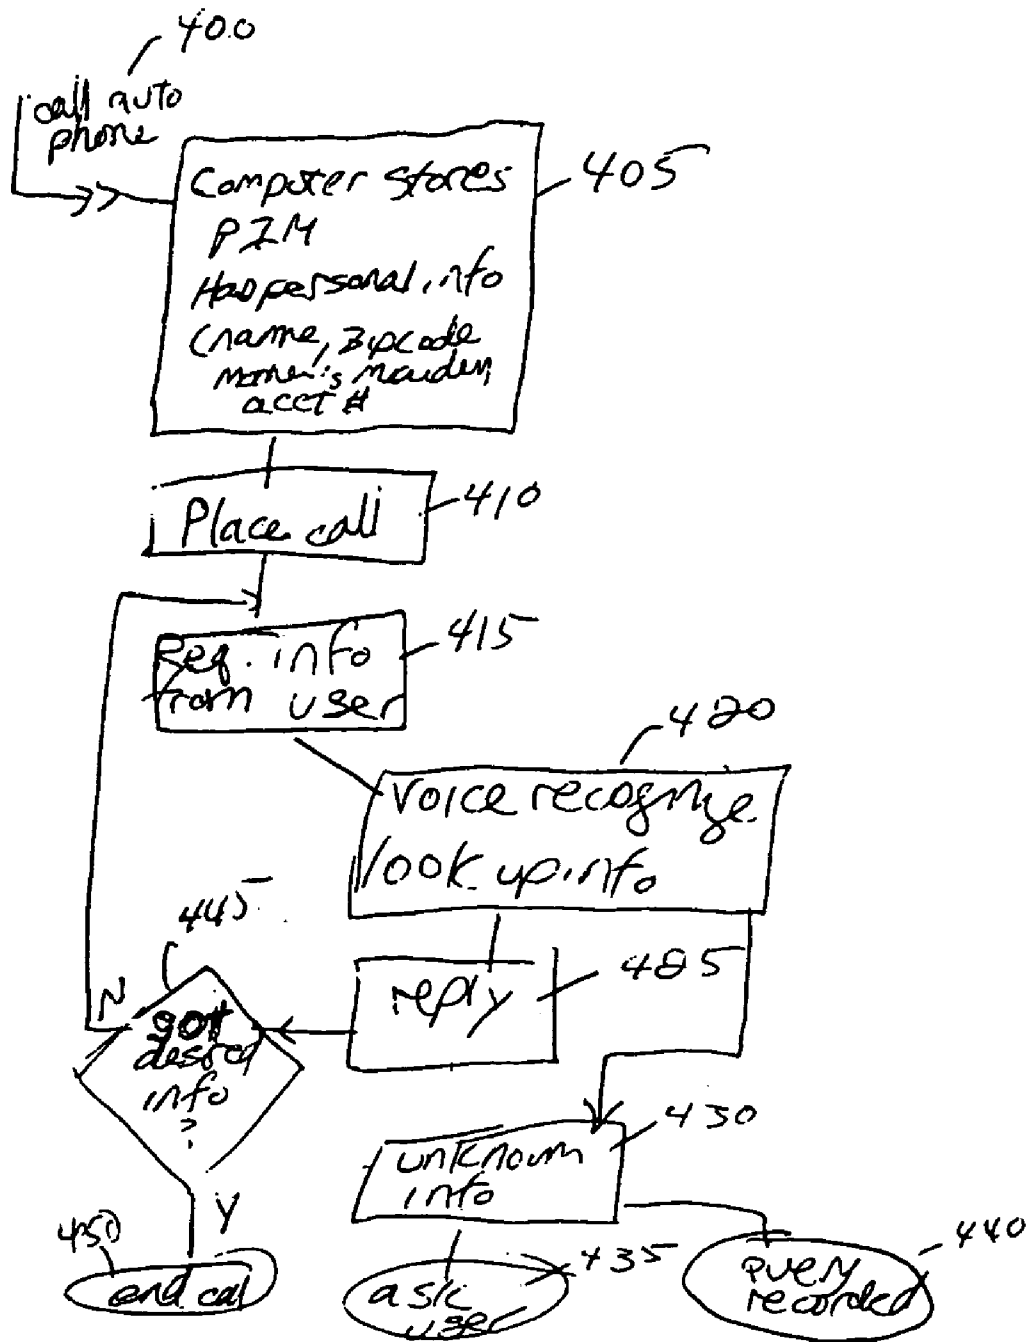 400
call auto
phone
Computer stores
PIM
Has personal info
(name, zipcode
mother's maiden,
acct #
405
Place call
410
Req. info
from user
415
420
Voice recognize
look up info
445
reply
425
N
got
desired
info
?
430
unknown
info
Y
450
end call
435
ask
user
440
query
recorded